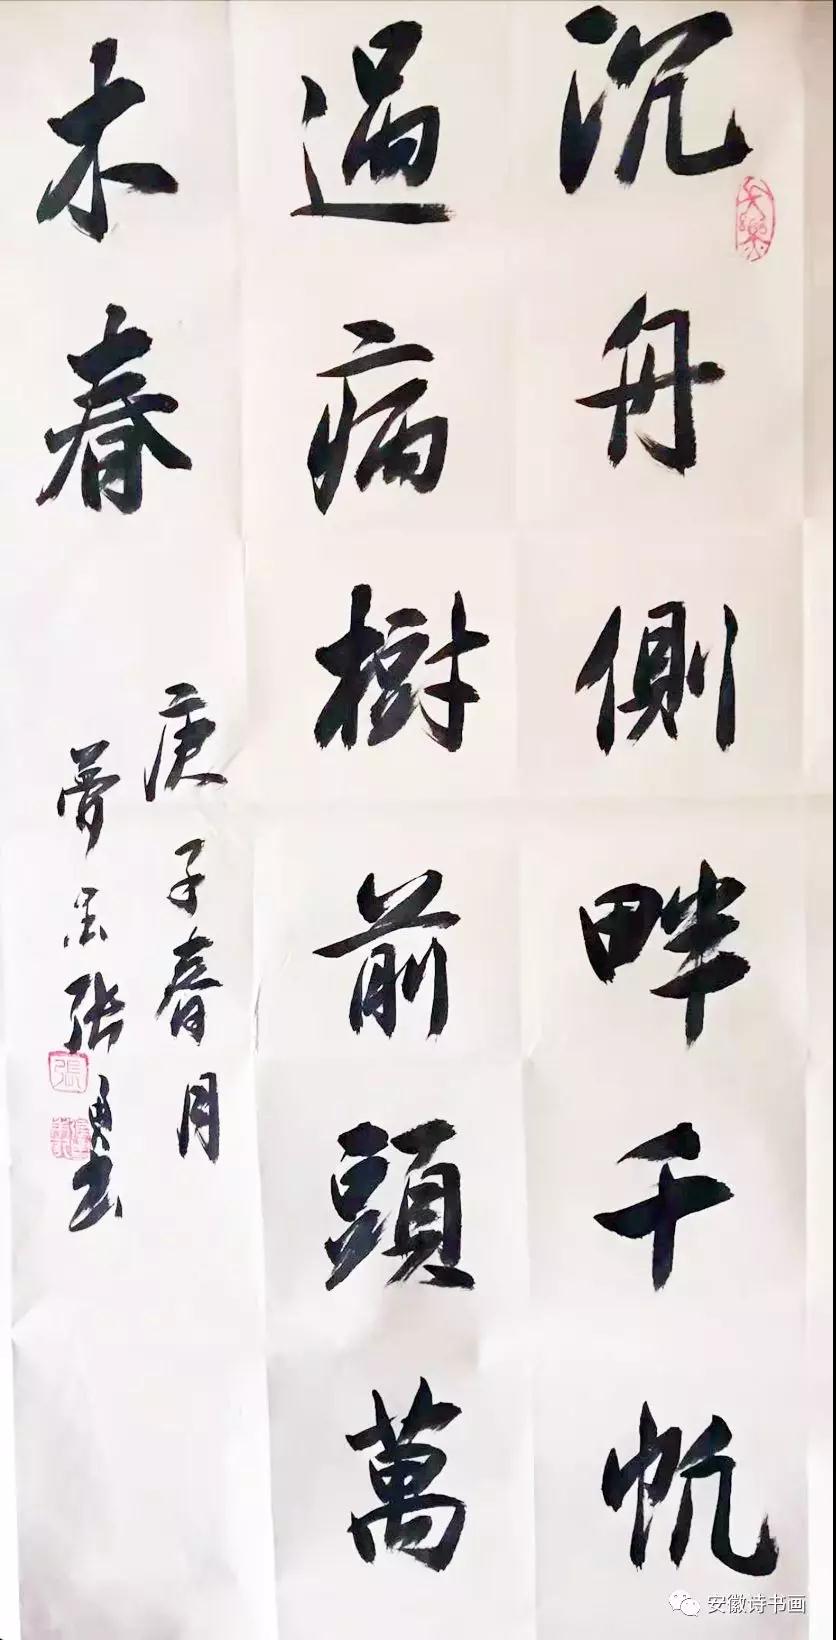 沉舟側畔千帆
過病樹前頭萬
木春
庚子春月
夢墨張勇书
張
安徽诗书画